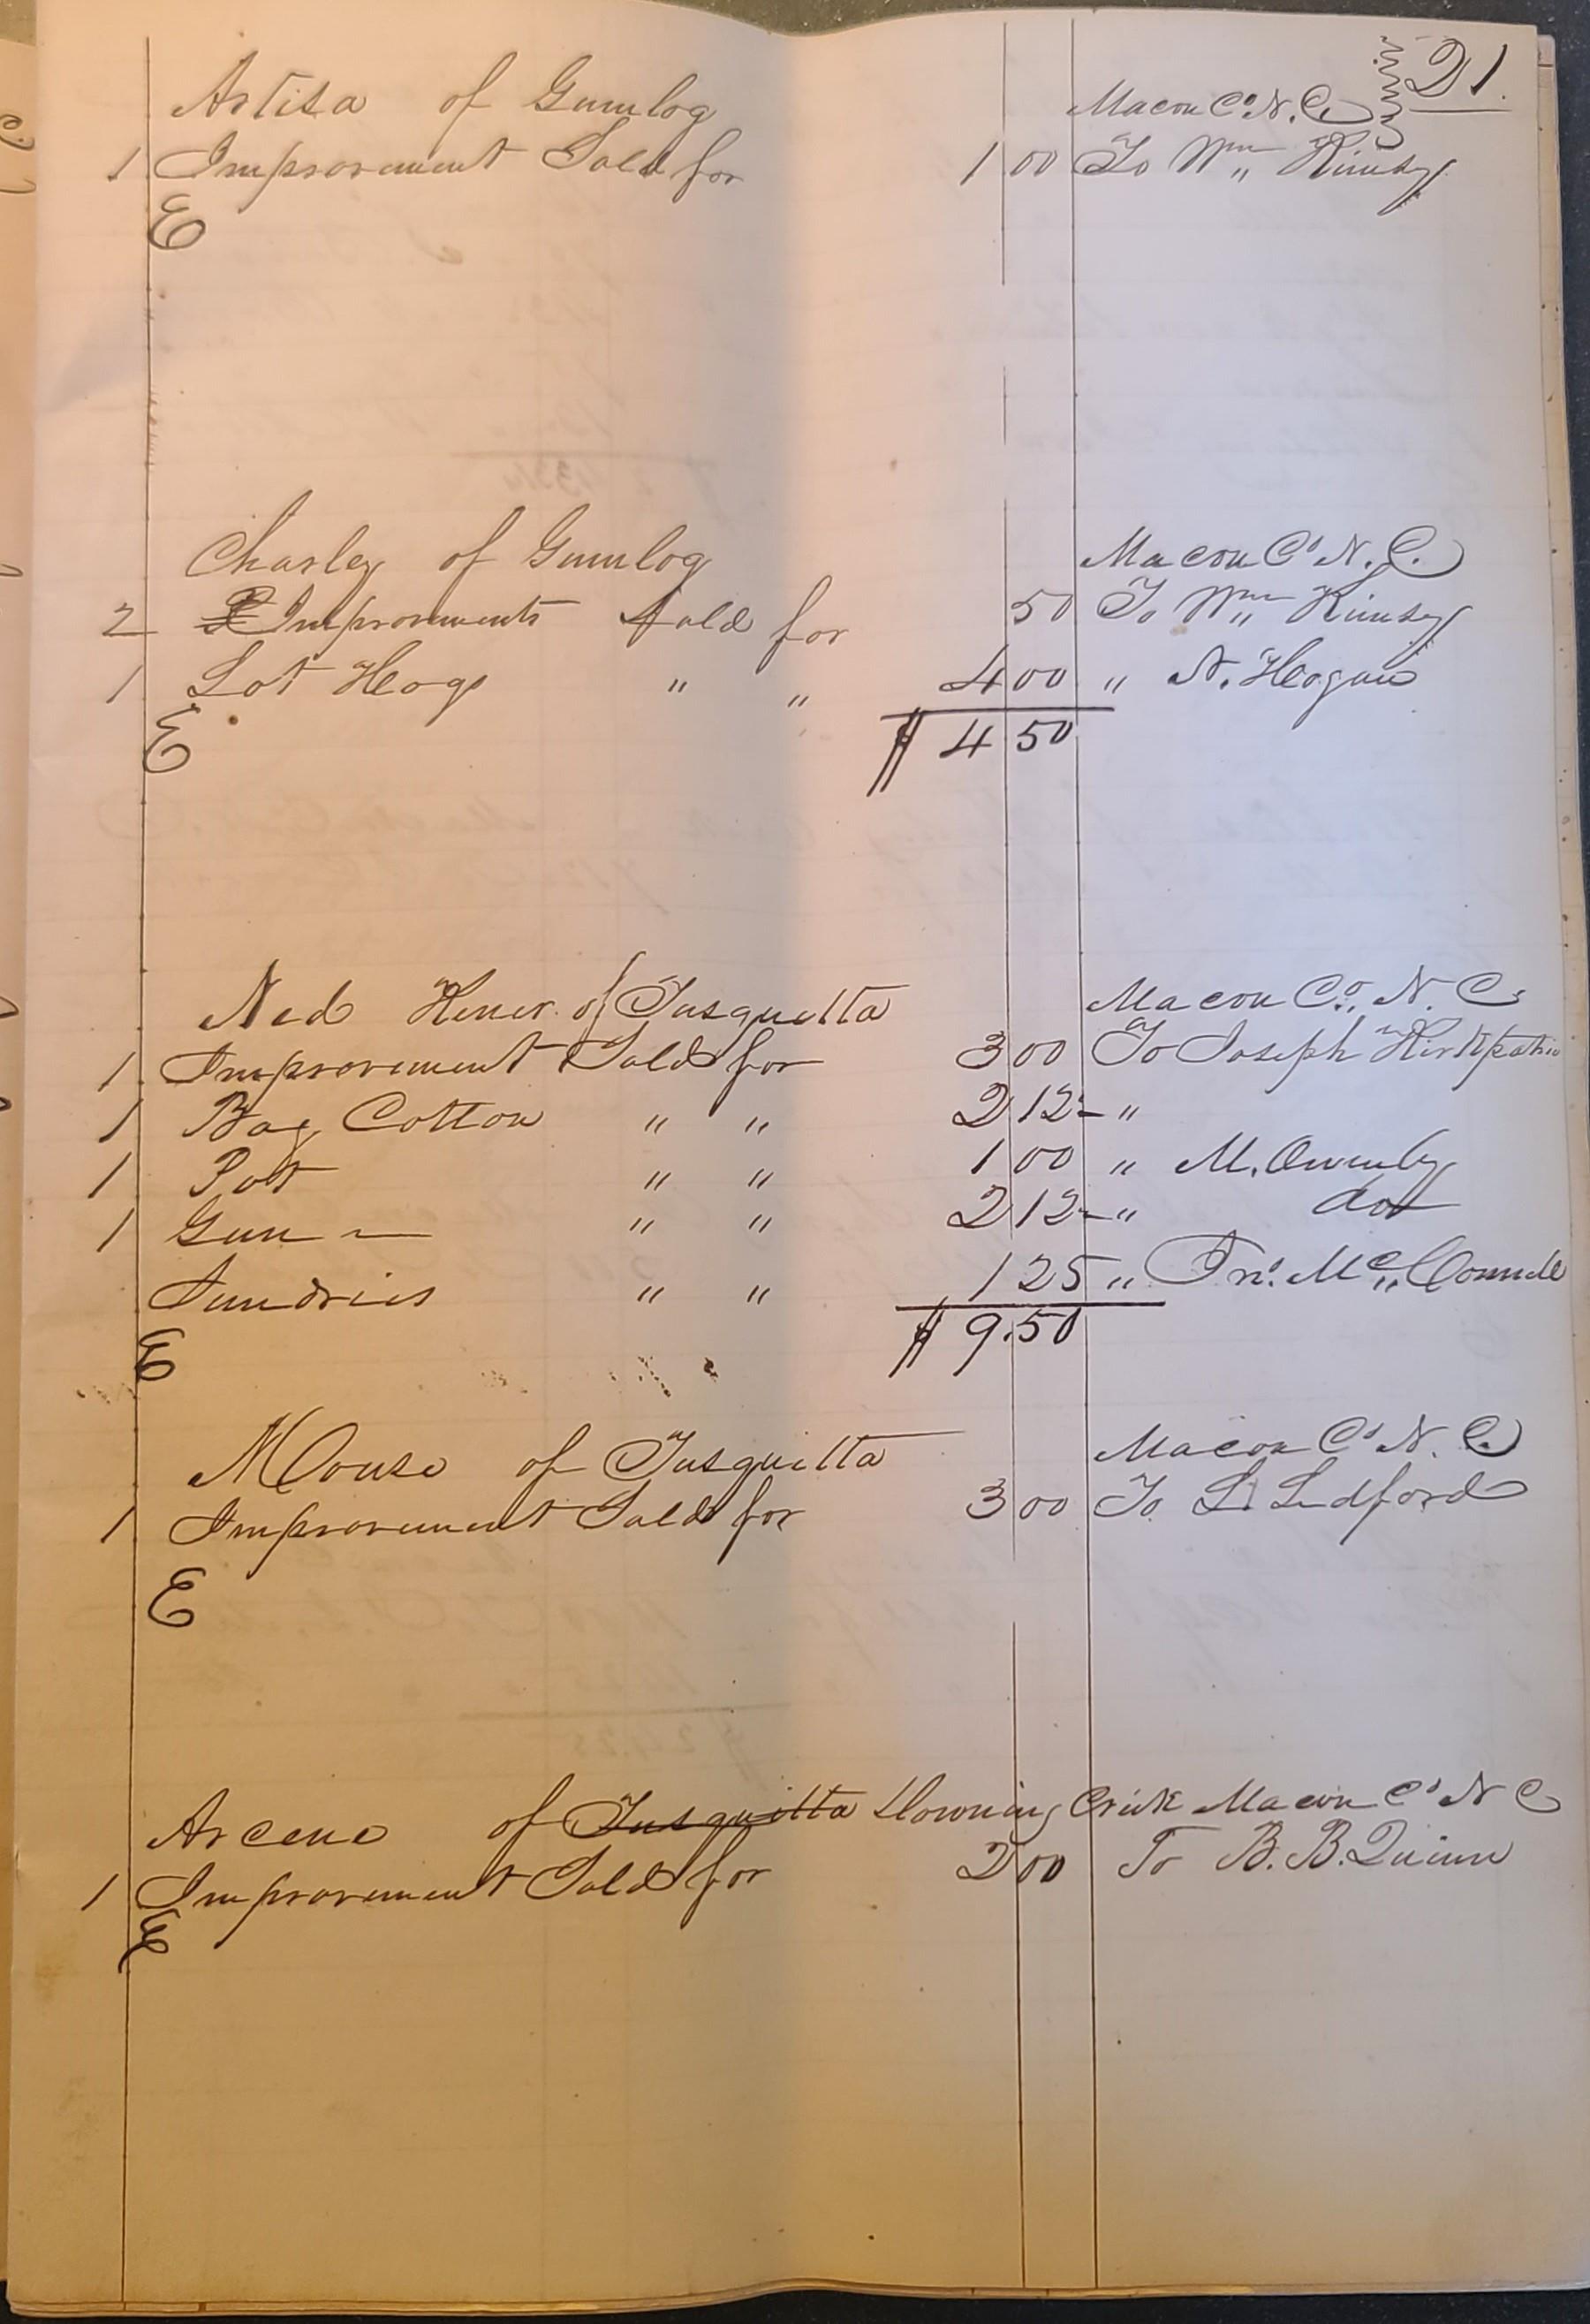 21.
Artisa of Gumlog Macon Co. N. C.
1 Improvement Sold for 1 00 To Wm Kimsey
E
Charley of Gumlog Macon Co N. C.
2 Improvements Sold for 50 To Wm Kimsey
1 Lot Hogs " " 4 00 " N. Hogan
$ 4 50
E
Ned of Tusquitta Macon Co. N. C.
1 Improvement Sold for 3 00 To Joseph Kirkpatric
1 Bag Cotton " " 2 12- "
1 Pot " " 1 00 " M. Ownby
1 Gun " " 2 12- " do
Sundries " " 1 25 " Jno. Mc Connell
$ 9.50
E
Mouse of Tusquitta Macon Co N. C.
1 Improvement Sold for 3 00 To L. Ledford
E
Arcene of Tusquitta Downing Crick Macon Co N C
1 Improvement Sold for 2 00 To B. B. Quinn
E